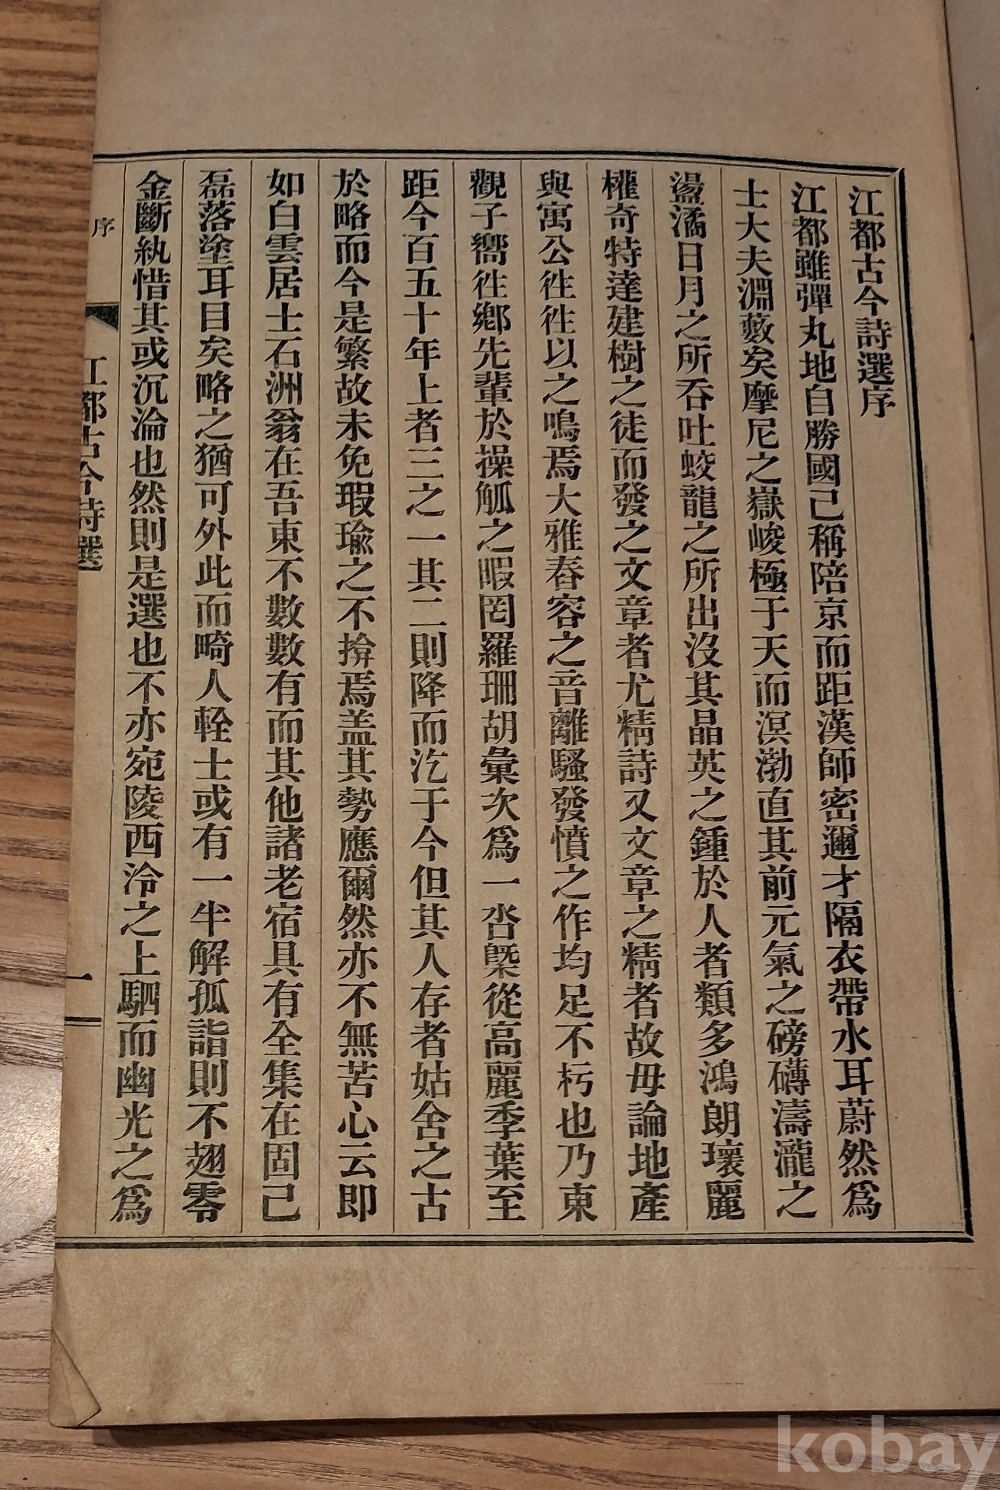 江都古今詩選序
江都雖彈丸地自勝國已稱陪京而距漢師密邇才隔衣帶水耳蔚然爲
士大夫淵藪矣摩尼之嶽峻極于天而溟渤直其前元氣之磅礴濤瀧之
盪潏日月之所吞吐蛟龍之所出沒其晶英之鍾於人者類多鴻朗瓌麗
權奇特達建樹之徒而發之文章者尤精詩又文章之精者故毋論地產
與寓公徃徃以之鳴焉大雅舂容之音離騷發憤之作均足不朽也乃東
觀子嚮徃鄕先輩於操觚之暇罔羅珊胡彙次爲一沓槩從高麗季葉至
距今百五十年上者三之一其二則降而汔于今但其人存者姑舍之古
於略而今是繁故未免瑕瑜之不揜焉盖其勢應爾然亦不無苦心云即
如白雲居士石洲翁在吾東不數數有而其他諸老宿具有全集在固已
磊落塗耳目矣略之猶可外此而畸人輇士或有一半解孤詣則不翅零
金斷紈惜其或沉淪也然則是選也不亦宛陵西泠之上駟而幽光之爲
序
江都古今詩選
一
kobay